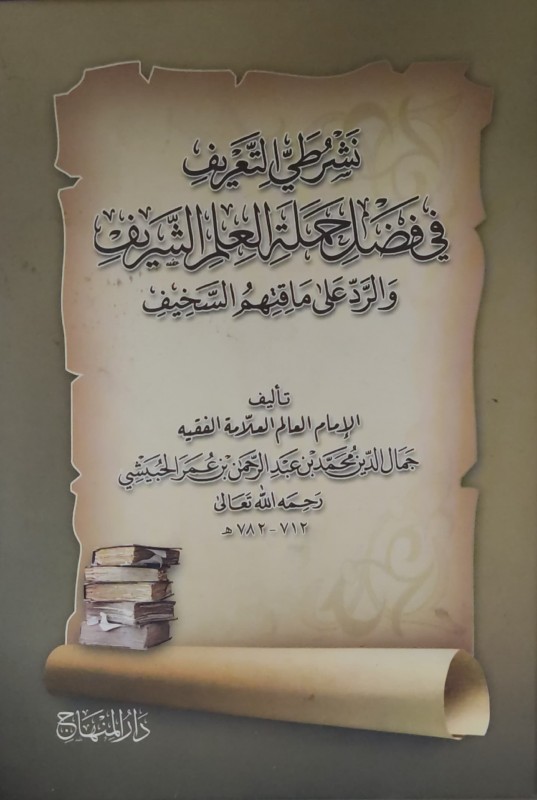 نَشْرُ طَيِّ التَّعْرِيفِ
فِي فَضْلِ حَمَلَةِ العِلْمِ الشَّرِيفِ
وَالرَّدِّ عَلَى مَاقِتِهِمُ السَّخِيفِ
تأليف
الإمام العالم العلّامة الفقيه
جَمَال الدِّين مُحَمَّد بْن عَبْد الرَّحْمَن بْن عُمَر الحُبَيْشِي
رَحِمَه الله تَعَالى
٧١٢ - ٧٨٢ هـ
دَارُ المِنْهَاجِ